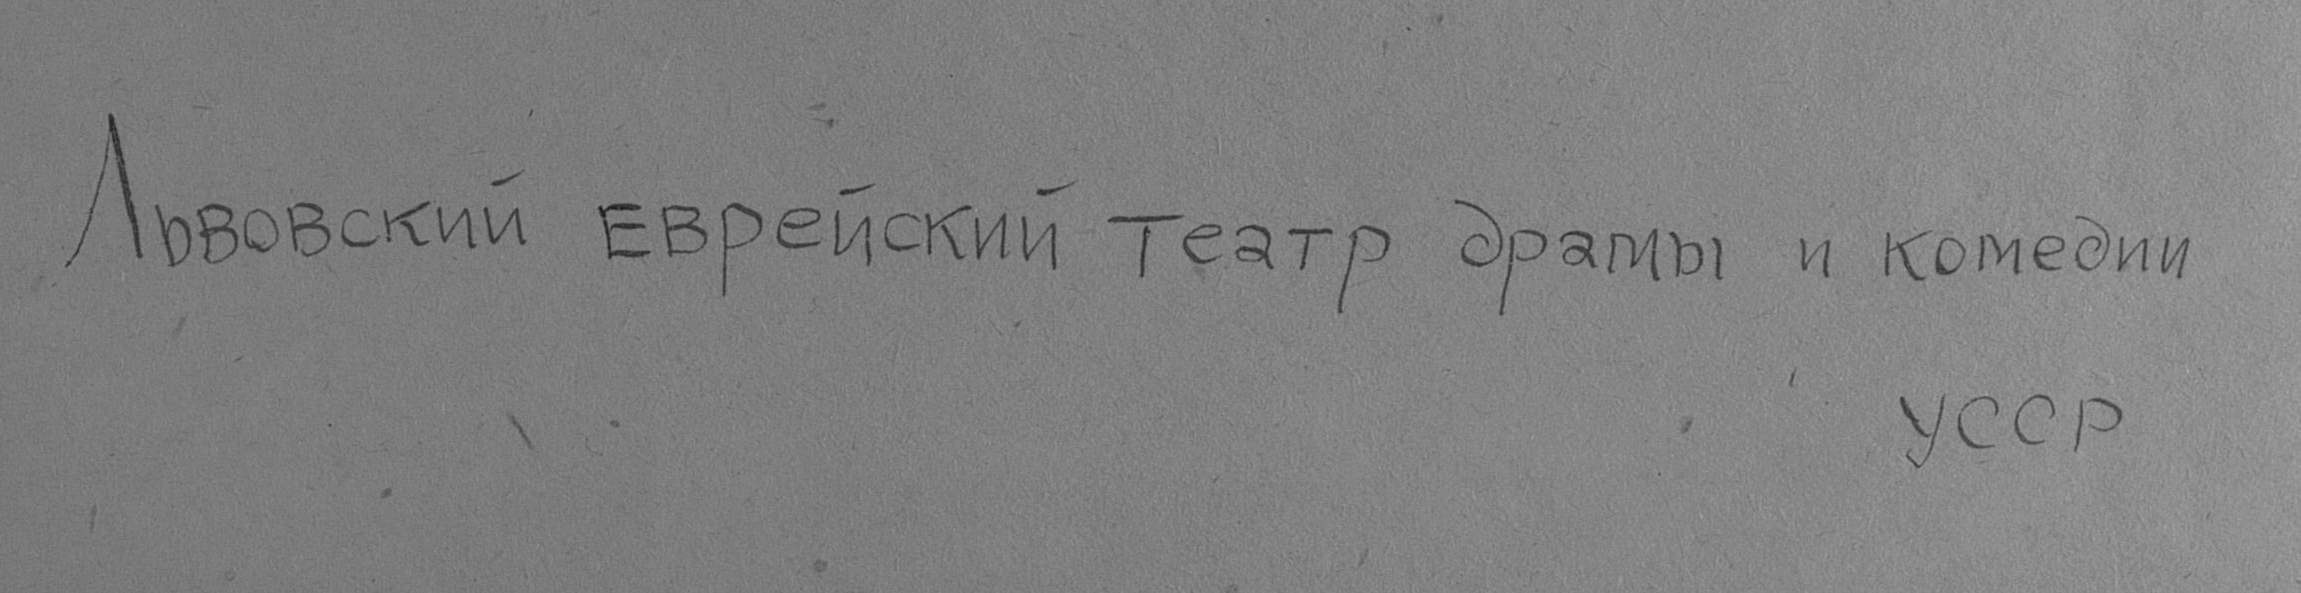 Львовский еврейский театр драмы и комедии
УССР